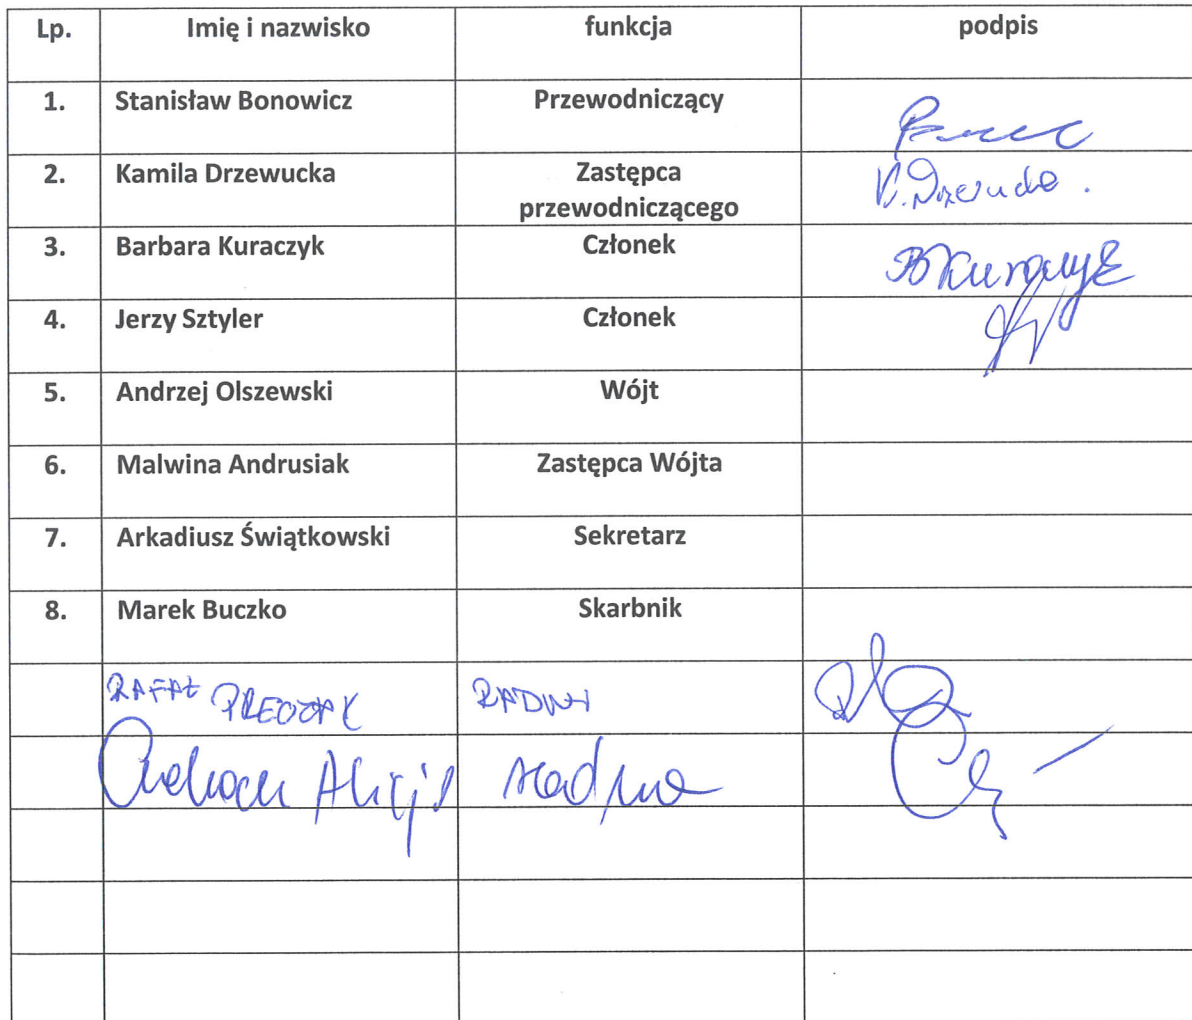 Lp. Imię i nazwisko funkcja podpis
1. Stanisław Bonowicz Przewodniczący
2. Kamila Drzewucka Zastępca
przewodniczącego
3. Barbara Kuraczyk Członek BKuraczyk
4. Jerzy Sztyler Członek
5. Andrzej Olszewski Wójt
6. Malwina Andrusiak Zastępca Wójta
7. Arkadiusz Świątkowski Sekretarz
8. Marek Buczko Skarbnik
RAFAŁ RADNY
Alicja radna